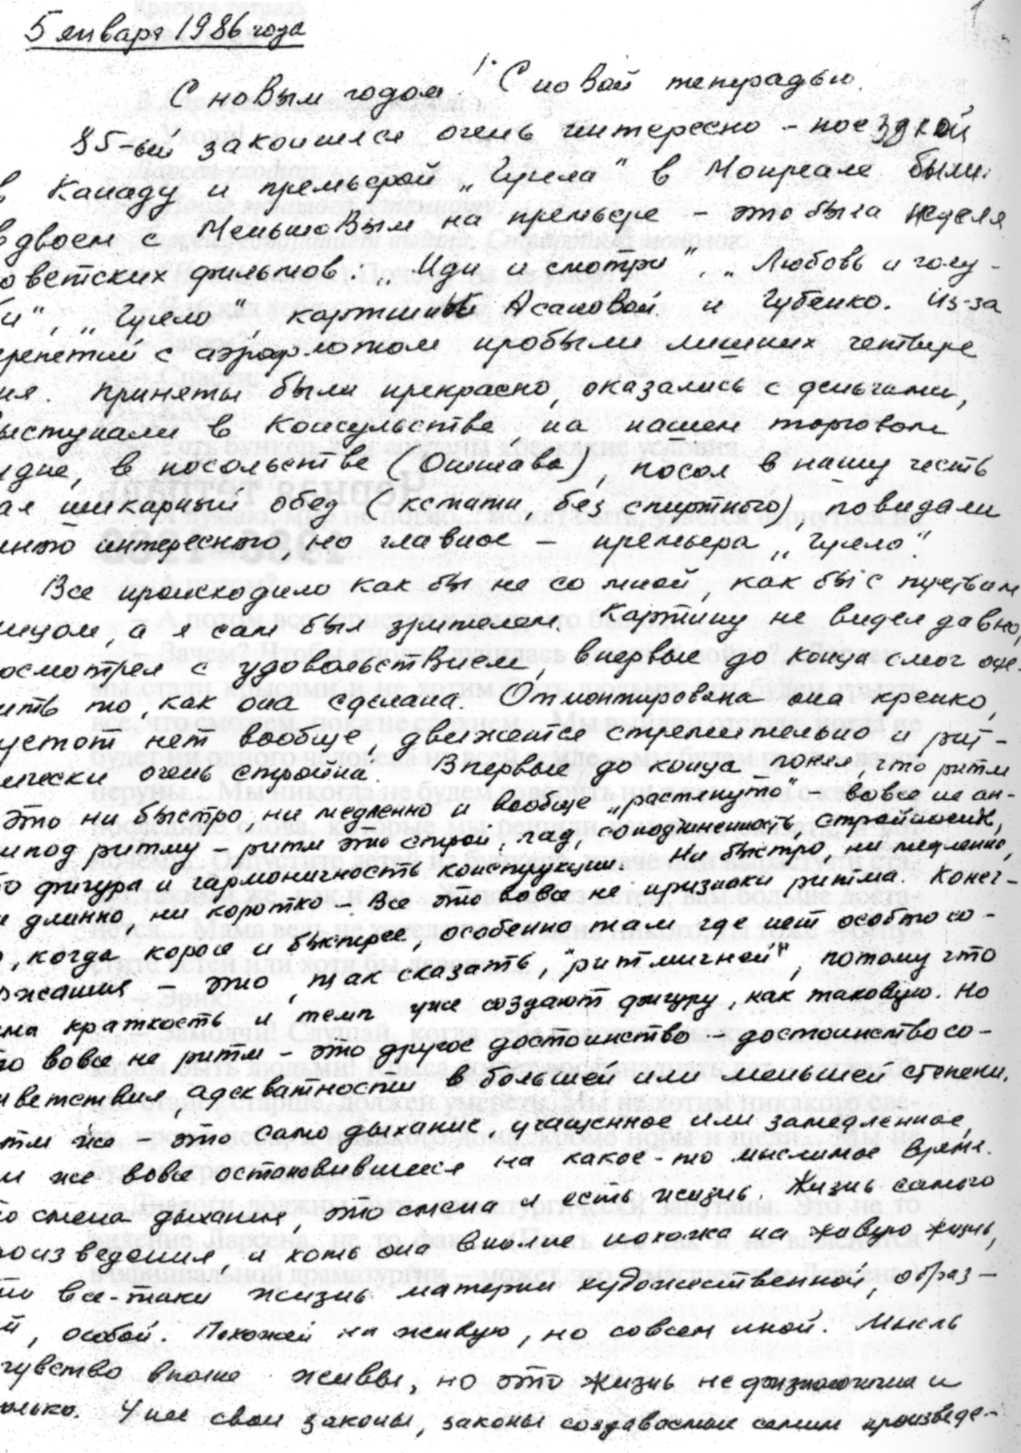 1
5 января 1986 года
С новым годом! С новой тетрадью.
85-ый закончился очень интересно – поездкой
в Канаду и премьерой „Чучела" в Монреале. Были
вдвоем с Меньшовым на премьере – это была неделя
оветских фильмов: „Иди и смотри", „Любовь и голу-
и", „Чучело", картины Асановой и Губенко. Из-за
ерепетий с аэрофлотом пробыли лишних четыре
ня. Приняты были прекрасно, оказались с деньгами,
ыступали в Консульстве, на нашем торговом
удне, в посольстве (Оттава), посол в нашу честь
ал шикарный обед (кстати, без спиртного), повидали
ного интересного, но главное – премьера „Чучело".
Все происходило как бы не со мной, как бы с
ицом, а я сам был зрителем. Картину не видел давно,
осмотрел с удовольствием, впервые до конца смог оце-
ить то, как она сделана. Отмонтирована она крепко,
устот нет вообще, движется стремительно и рит-
мически очень стройна. Впервые до конца понял, что ритм
это ни быстро, ни медленно и вообще „растянуто" – вовсе не ан-
типод ритму – ритм это строй, лад, соподчиненность, стройность,
то фигура и гармоничность конструкции. Ни быстро, ни медленно,
и длинно, ни коротко – все это вовсе не признаки ритма. Конеч-
о, когда короче и быстрее, особенно там где нет особого со-
ржания – это, так сказать, "ритмичней", потому что
ама краткость и темп уже создают фигуру, как таковую. Но
то вовсе не ритм – это другое достоинство – достоинство со-
тветствия, адекватности в большей или меньшей степени.
итм же – это само дыхание, учащенное или замедленное,
и же вовсе остановившееся на какое-то мыслимое время.
то смена дыхания, эта смена и есть жизнь. Жизнь самого
роизведения, и хоть она вполне похожа на живую жизнь,
то все-таки жизнь материи художественной, образ-
й, особой. Похожей на живую, но совсем иной. Мысль
чувство вполне живы, но это жизнь не физиологичная и
олько. У нее свои законы, законы создаваемые самим произведе-